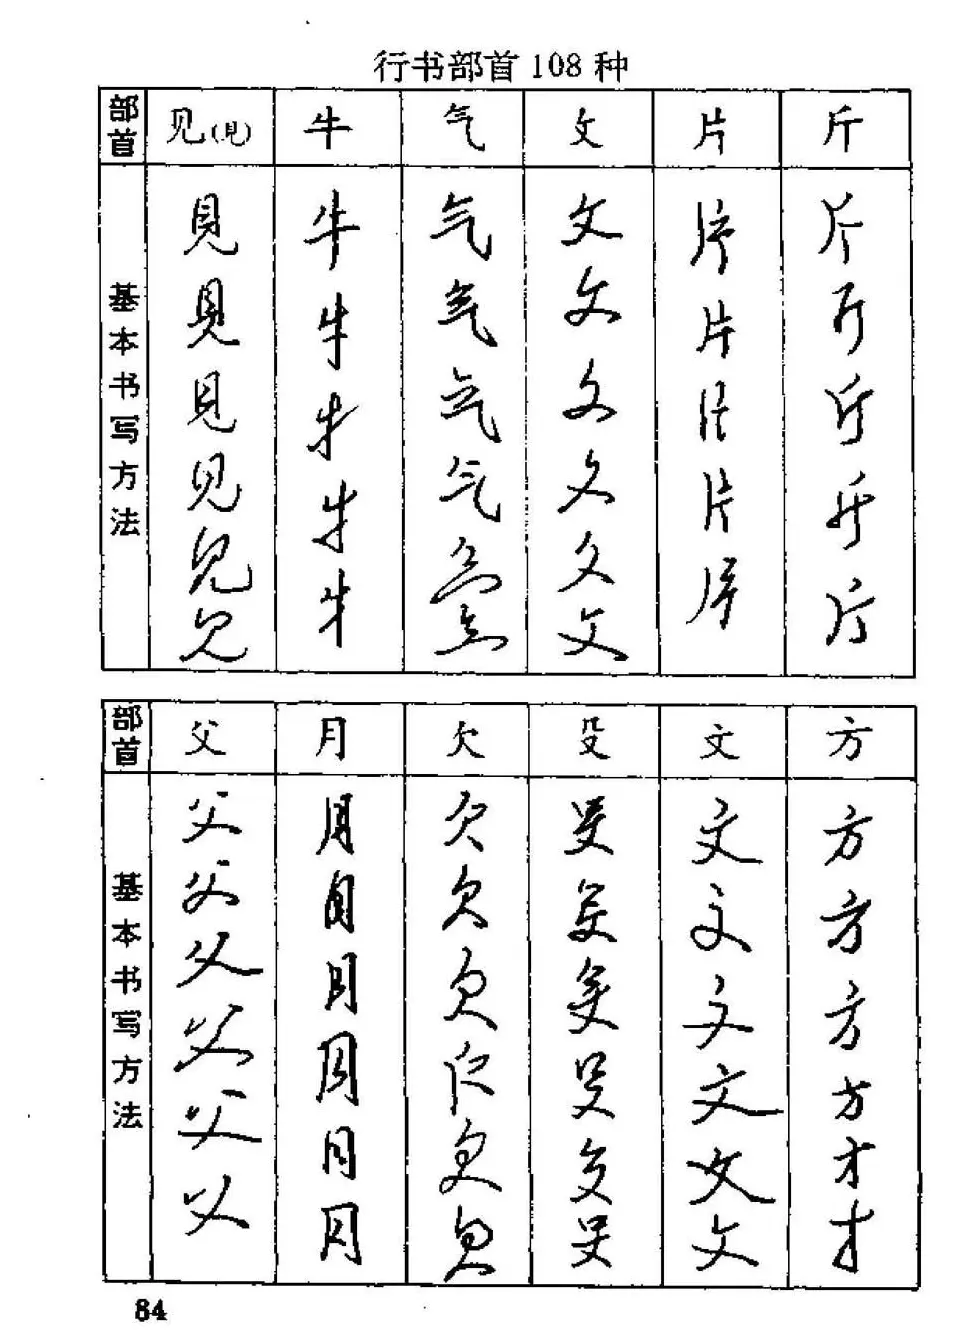 行书部首108种
部首 见(見) 牛 气 攵 片 斤
基本书写方法
見見見见见见
牛牛牛牛牛
气气气气气气
攵攵攵攵攵攵
片片片片片
斤斤斤斤斤
部首 父 月 欠 殳 文 方
基本书写方法
父父父父父父
月月月月月月
欠欠欠欠欠欠
殳殳殳殳殳殳
文文文文文文
方方方方方方
84